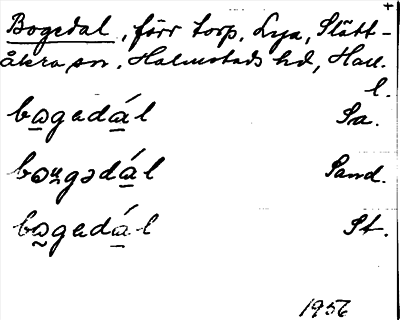 +
Bogedal, förr torp, Lya, Slätt-
åkra sn, Halmstads hd, Hall.
l.
bo̲gedá̲l Sa.
bau̲gədá̲l Sand.
bo̰gedá̲l St.
1956